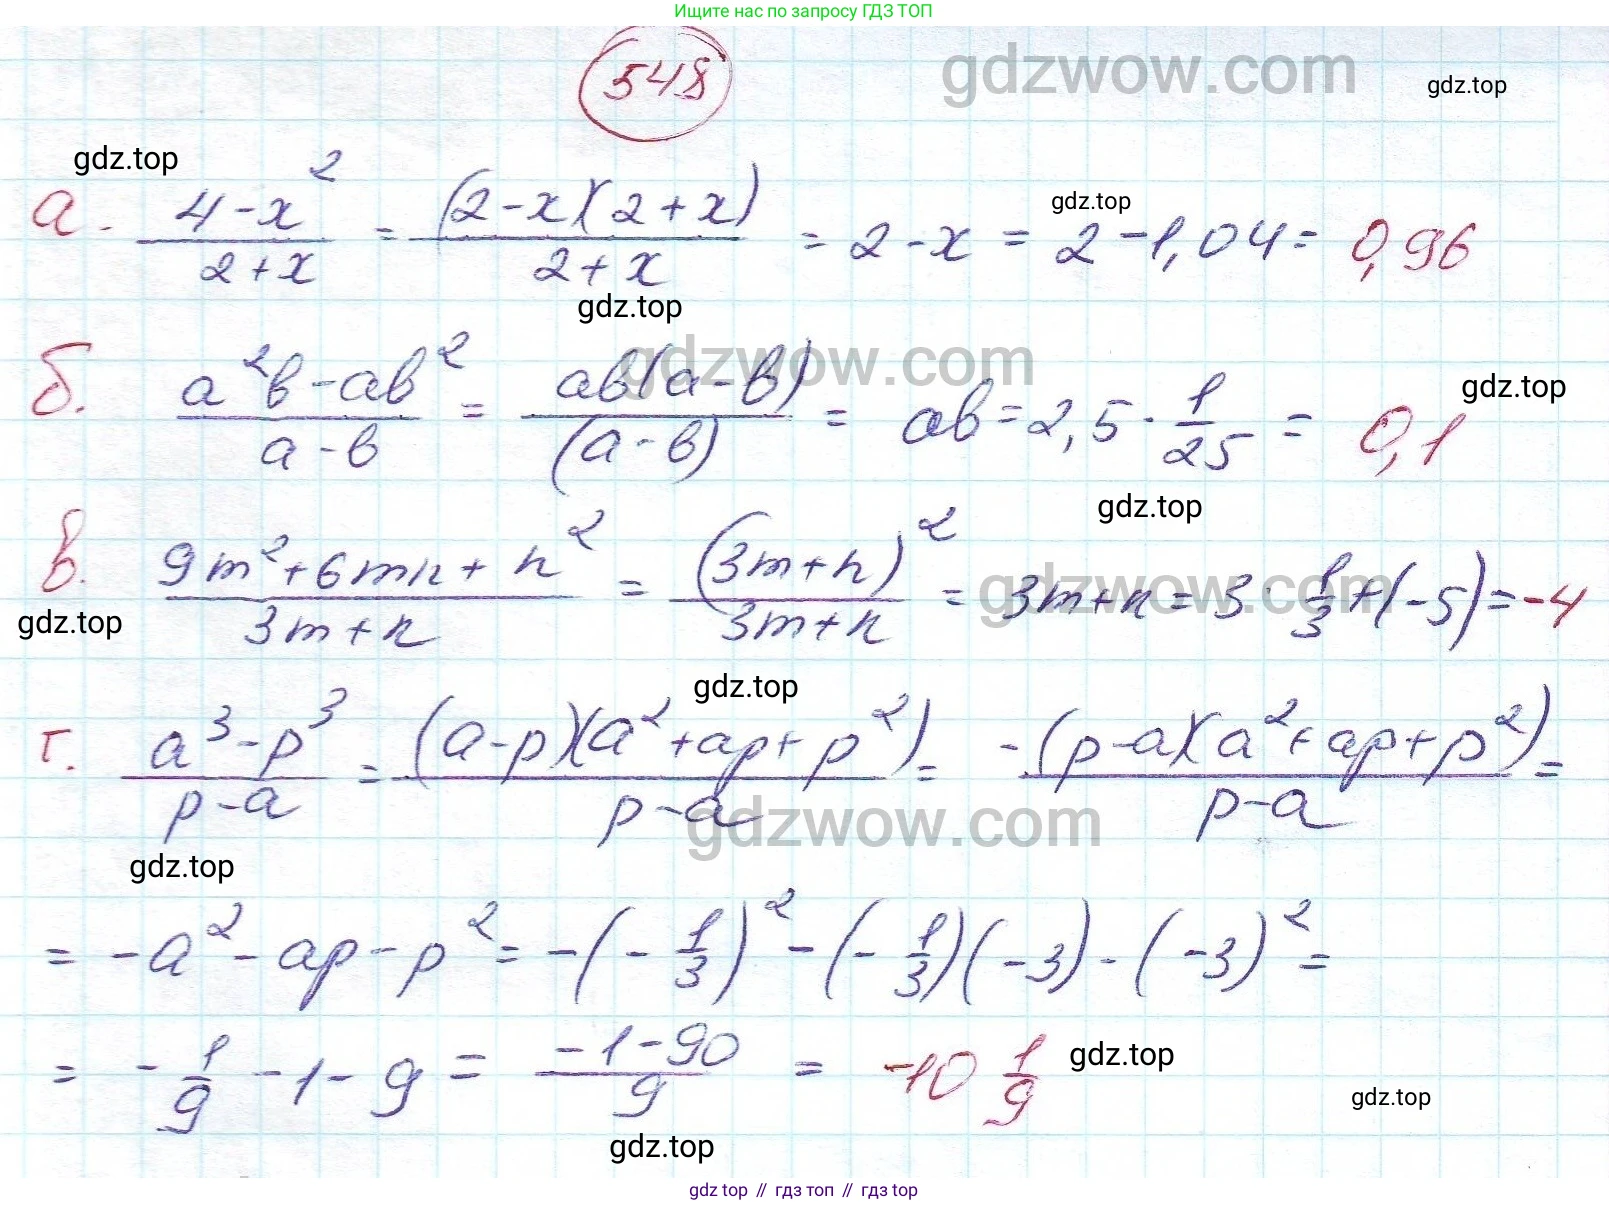 Ищите нас по запросу ГДЗ ТОП
548
gdzwow.com
gdz.top
gdz.top
а. (4-x²)/(2+x) = ((2-x)(2+x))/(2+x) = 2-x = 2-1,04 = 0,96
gdz.top
gdz.top
gdzwow.com
б. (a²b-ab²)/(a-b) = (ab(a-b))/((a-b)) = ab = 2,5 · 1/25 = 0,1
gdz.top
gdz.top
в. (9m²+6mn+n²)/(3m+n) = (3m+n)²/(3m+n) = 3m+n = 3 · 1/3 + (-5) = -4
gdzwow.com
gdz.top
gdz.top
г. (a³-p³)/(p-a) = ((a-p)(a²+ap+p²))/(p-a) = (-(p-a)(a²+ap+p²))/(p-a) =
gdzwow.com
gdz.top
= -a²-ap-p² = -(-1/3)² - (-1/3)(-3) - (-3)² =
= -1/9 -1-9 = (-1-90)/9 = -10 1/9
gdz.top
gdz.top
gdz.top
gdz top // гдз топ // гдз top